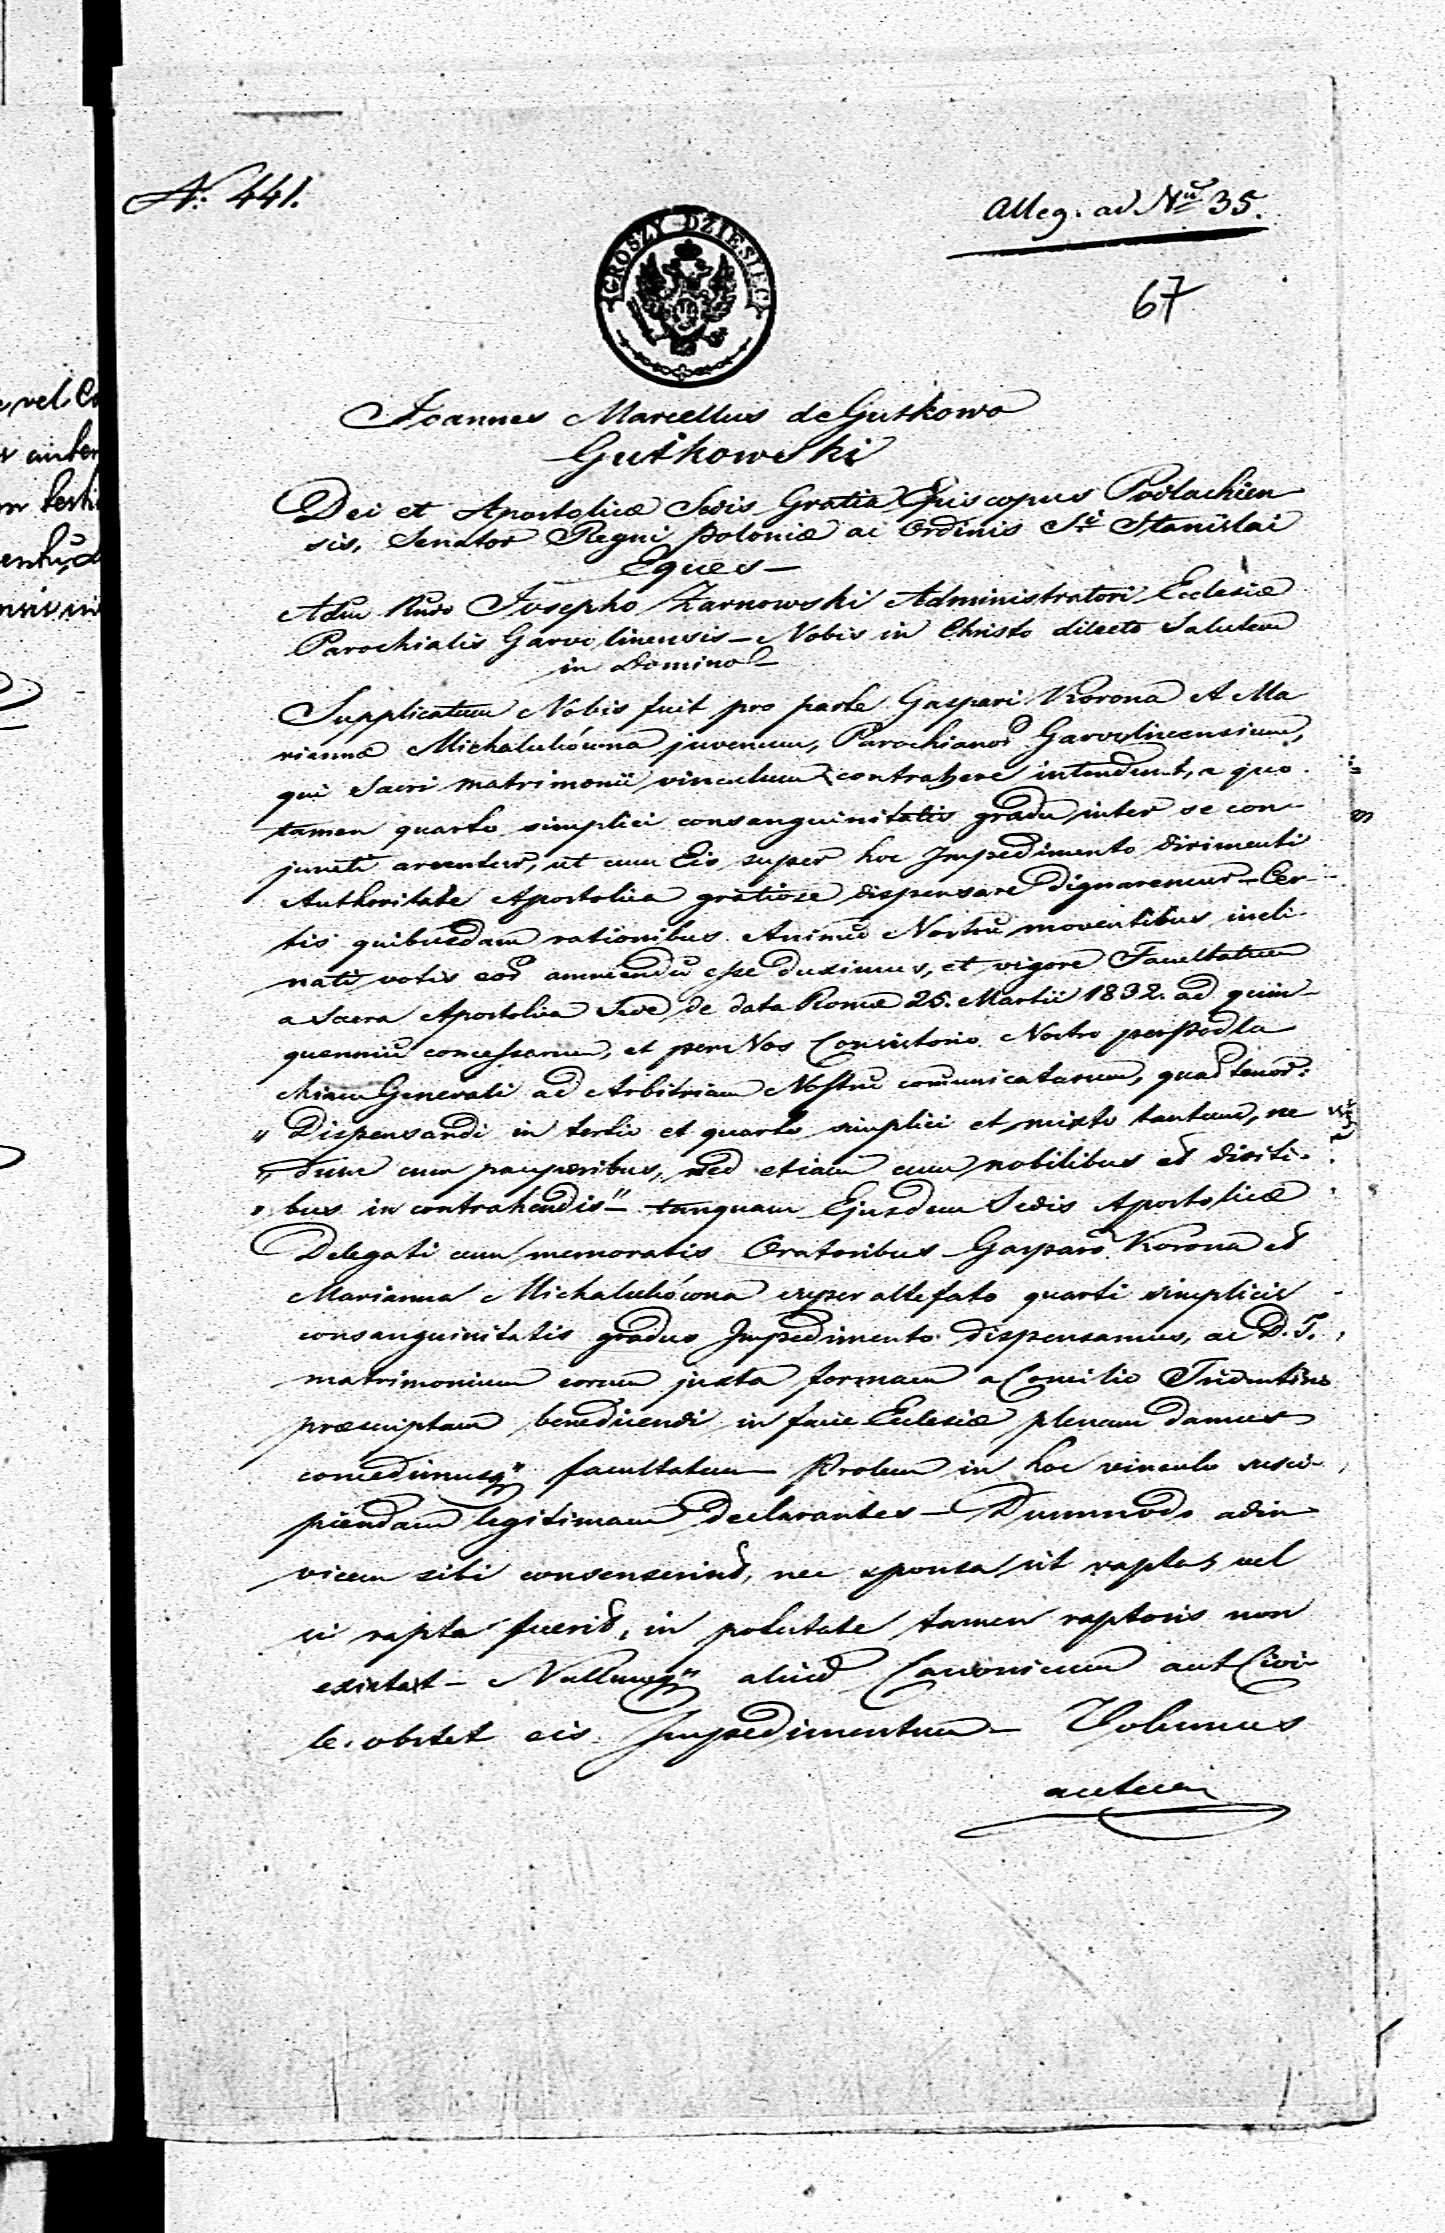 N: 441.
Alleg. ad Nrū 35.
67
GROSZY DZIESIĘĆ
Joannes Marcellus de Gutkowo
Gutkowski
Dei et Apostolicæ Sedis Gratia Episcopus Podlachien
sis, Senator Regni Poloniæ ac Ordinis Sti Stanislai
Eques —
Adm Rndo Josepho Żarnowski Administratori Ecclesiæ
Parochialis Garvolinensis — Nobis in Christo dilecto Salutem
in Domino —
Supplicatum Nobis fuit pro parte Gaspari Korona et Ma
riannæ Michalukówna juvenum, Parochianor Garvolinensium,
qui Sacri matrimonii vinculum contrahere intendunt, a quo
tamen quarto simplici consanguinitatis gradu inter se con
juncti arcentur, ut cum Eis super hoc Impedimento dirimenti
Authoritate Apostolica gratiose dispensare dignaremur — Cer
tis quibusdam rationibus Animū Nostrū moventibus incli
nati votis eor annuendū esse duximus, et vigore Facultatum
a Sacra Apostolica Sede de data Romæ 25. Martii 1832. ad quin
quenniū concessarum, et per Nos Consistorio Nostro per Podla
chiam Generali ad Arbitrium Nostrū comūnicatarum, quar tenor:
„ Dispensandi in tertio et quarto simplici et mixto tantum, ne
„ dum cum pauperibus, sed etiam cum nobilibus et diviti-
„ bus in contrahendis" — tanquam Ejusdem Sedis Apostolicæ
Delegati cum memoratis Oratoribus Gasparo Korona et
Marianna Michalukówna super attefato quarti simplicis
consanguinitatis gradus Impedimento dispensamus, ac D. T.
matrimonium eorum juxta formam a Concilio Tridentino
præscriptam benedicendi in facie Ecclesiæ plenam damus
concedimusq" facultatem — Prolem in hoc vinculo susci-
piendam legitimam declarantes — Dummodo adin
vicem sibi consenserint, nec sponsa sit rapta, vel
si rapta fuerit, in potestate tamen raptoris non
existat — Nullumq" aliud Canonicum aut Civi
le obstet eis Impedimentum — Volumus
autem